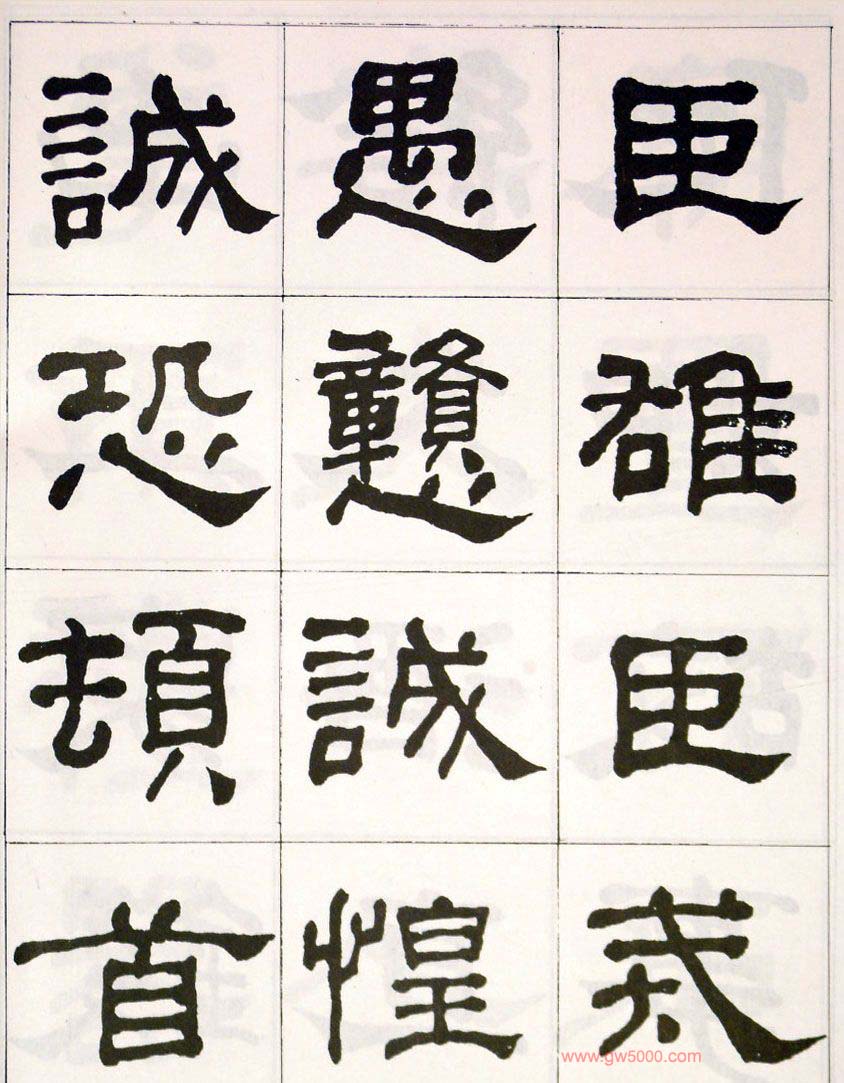 臣雄臣戒
愚戇誠惶
誠恐頓首
www.gw5000.com